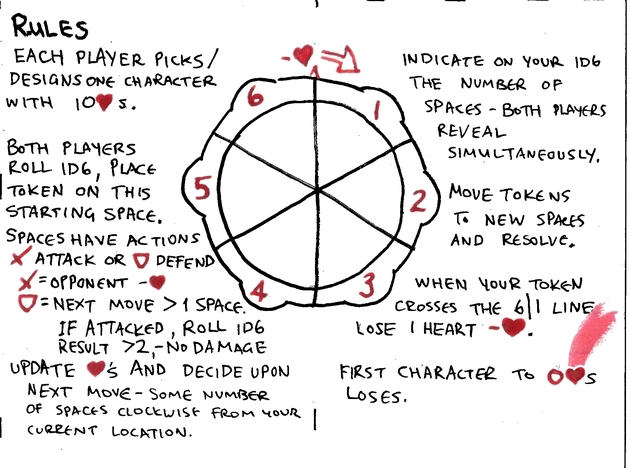 RULES
EACH PLAYER PICKS/
DESIGNS ONE CHARACTER
WITH 10♥s.
BOTH PLAYERS
ROLL 1D6, PLACE
TOKEN ON THIS
STARTING SPACE.
SPACES HAVE ACTIONS
ATTACK OR DEFEND
= OPPONENT -♥
= NEXT MOVE > 1 SPACE.
IF ATTACKED, ROLL 1D6
RESULT >2, -NO DAMAGE
UPDATE ♥'s AND DECIDE UPON
NEXT MOVE - SOME NUMBER
OF SPACES CLOCKWISE FROM YOUR
CURRENT LOCATION.
-♥
6
1
5
2
4
3
INDICATE ON YOUR 1D6
THE NUMBER OF
SPACES - BOTH PLAYERS
REVEAL
SIMULTANEOUSLY.
MOVE TOKENS
TO NEW SPACES
AND RESOLVE.
WHEN YOUR TOKEN
CROSSES THE 6|1 LINE
LOSE 1 HEART -♥.
FIRST CHARACTER TO 0♥s
LOSES.